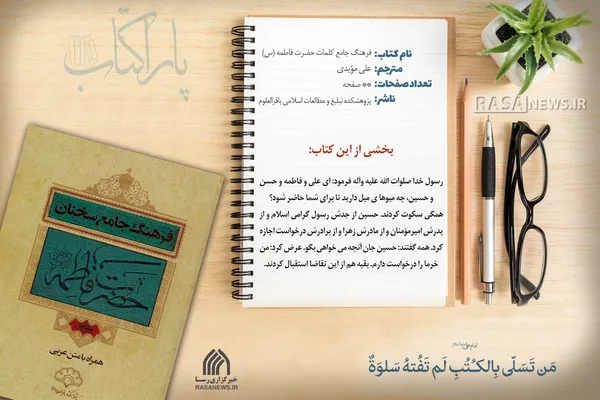 پاراکتاب
نام کتاب: فرهنگ جامع کلمات حضرت فاطمه (س)
مترجم: علی مؤیدی
تعداد صفحات: ** صفحه
ناشر: پژوهشکده تبلیغ و مطالعات اسلامی باقرالعلوم
بخشی از این کتاب:
رسول خدا صلوات الله علیه وآله فرمود: ای علی و فاطمه و حسن
و حسین، چه میوه‌ای میل دارید تا برای شما حاضر شود؟
همگی سکوت کردند. حسین از جدش رسول گرامی اسلام و از
پدرش امیرمؤمنان و از مادرش زهرا و از برادرش درخواست اجازه
کرد. همه گفتند: حسین جان آنچه می خواهی بگو. عرض کرد: من
خرما را درخواست دارم. بقیه هم از این تقاضا استقبال کردند.
RASANEWS.IR
فرهنگ جامع سخنان
حضرت فاطمه
همراه با متن عربی
خبرگزاری رسا
RASANEWS.IR
مَن تَسَلّی بِالکُتُبِ لَم تَفُتهُ سَلوَةٌ